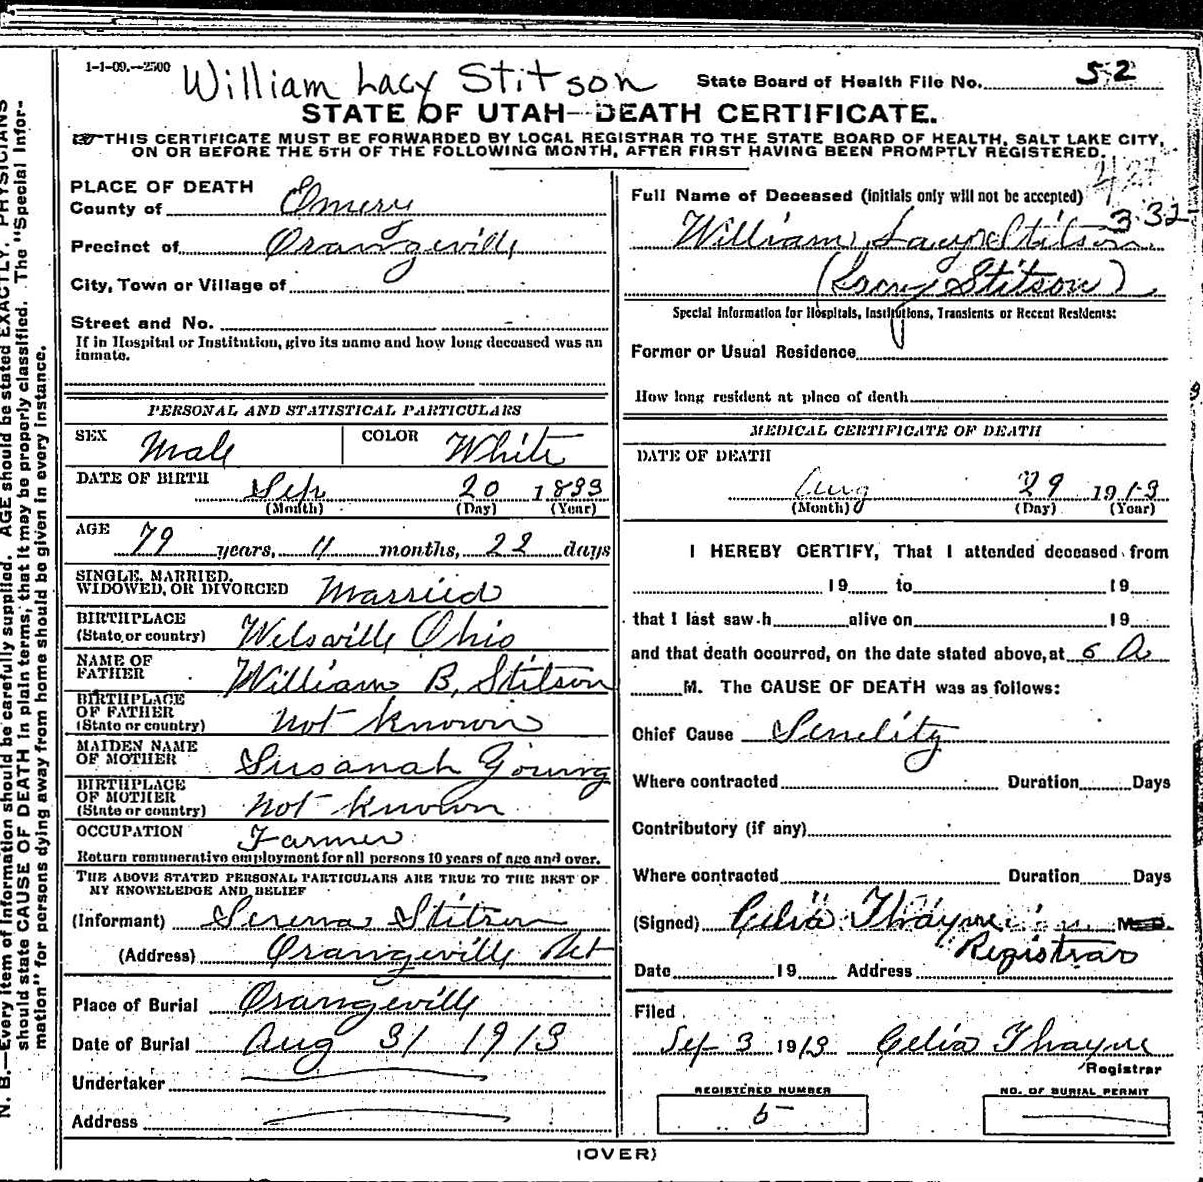 1-1-09.--2500
William Lacy Stitson
State Board of Health File No. 52
STATE OF UTAH--DEATH CERTIFICATE.
THIS CERTIFICATE MUST BE FORWARDED BY LOCAL REGISTRAR TO THE STATE BOARD OF HEALTH, SALT LAKE CITY,
ON OR BEFORE THE 5TH OF THE FOLLOWING MONTH, AFTER FIRST HAVING BEEN PROMPTLY REGISTERED.
PLACE OF DEATH
County of Emery
Precinct of Orangeville
City, Town or Village of
Street and No.
If in Hospital or Institution, give its name and how long deceased was an
inmate.
PERSONAL AND STATISTICAL PARTICULARS
SEX Male COLOR White
DATE OF BIRTH Sep 20 1833
(Month) (Day) (Year)
AGE 79 years, 11 months, 22 days
SINGLE, MARRIED,
WIDOWED, OR DIVORCED Married
BIRTHPLACE
(State or country) Welsville Ohio
NAME OF
FATHER William B. Stitson
BIRTHPLACE
OF FATHER
(State or country) not known
MAIDEN NAME
OF MOTHER Susanah Young
BIRTHPLACE
OF MOTHER
(State or country) not known
OCCUPATION Farmer
Return remunerative employment for all persons 10 years of age and over.
THE ABOVE STATED PERSONAL PARTICULARS ARE TRUE TO THE BEST OF
MY KNOWLEDGE AND BELIEF
(Informant) Serena Stitson
(Address) Orangeville Ut
Place of Burial Orangeville
Date of Burial Aug 31 1913
Undertaker
Address
Full Name of Deceased (initials only will not be accepted)
332
William Stitson
(Lacy Stitson)
Special Information for Hospitals, Institutions, Transients or Recent Residents:
Former or Usual Residence
How long resident at place of death
MEDICAL CERTIFICATE OF DEATH
DATE OF DEATH
Aug 29 1913
(Month) (Day) (Year)
I HEREBY CERTIFY, That I attended deceased from
19 to 19
that I last saw h alive on 19
and that death occurred, on the date stated above, at 6 A
M. The CAUSE OF DEATH was as follows:
Chief Cause Senelity
Where contracted Duration Days
Contributory (if any)
Where contracted Duration Days
(Signed) Celia Thayne M. D.
Registrar
Date 19 Address
Filed
Sep 3 1913 Celia Thayne
Registrar
REGISTERED NUMBER
5
NO. OF BURIAL PERMIT
(OVER)
N. B.--Every item of information should be carefully supplied. AGE should be stated EXACTLY. PHYSICIANS
should state CAUSE OF DEATH in plain terms, that it may be properly classified. The "Special Infor-
mation" for persons dying away from home should be given in every instance.